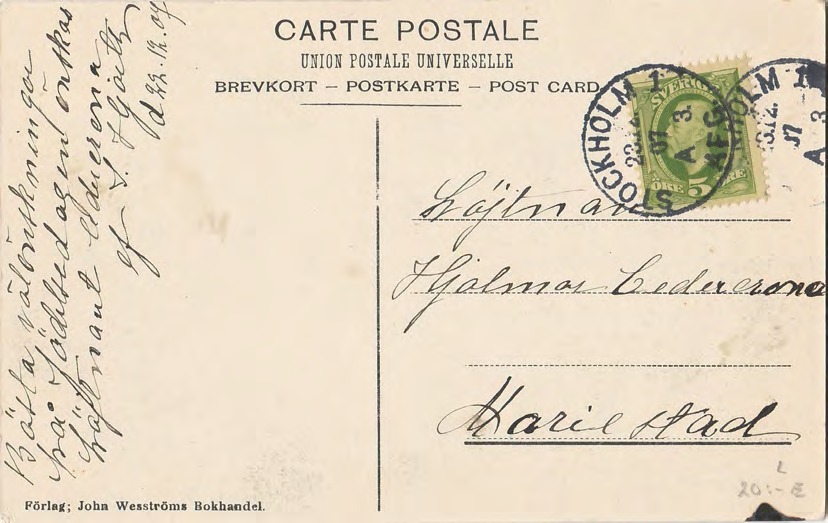 CARTE POSTALE
UNION POSTALE UNIVERSELLE
BREVKORT – POSTKARTE – POST CARD
Bästa välönskningar
på födelsedagen önskas
Löjtnant Cedercrona
af S. Hjorth
d 22.12.07
STOCKHOLM 1
23.12.
07
A 3.
AFG
STOCKHOLM 1
23.12.
07
A 3
SVERIGE
ÖRE 5 ÖRE
Löjtnant
Hjalmar Cedercrona
Mariestad
20:-
Förlag; John Wesströms Bokhandel.